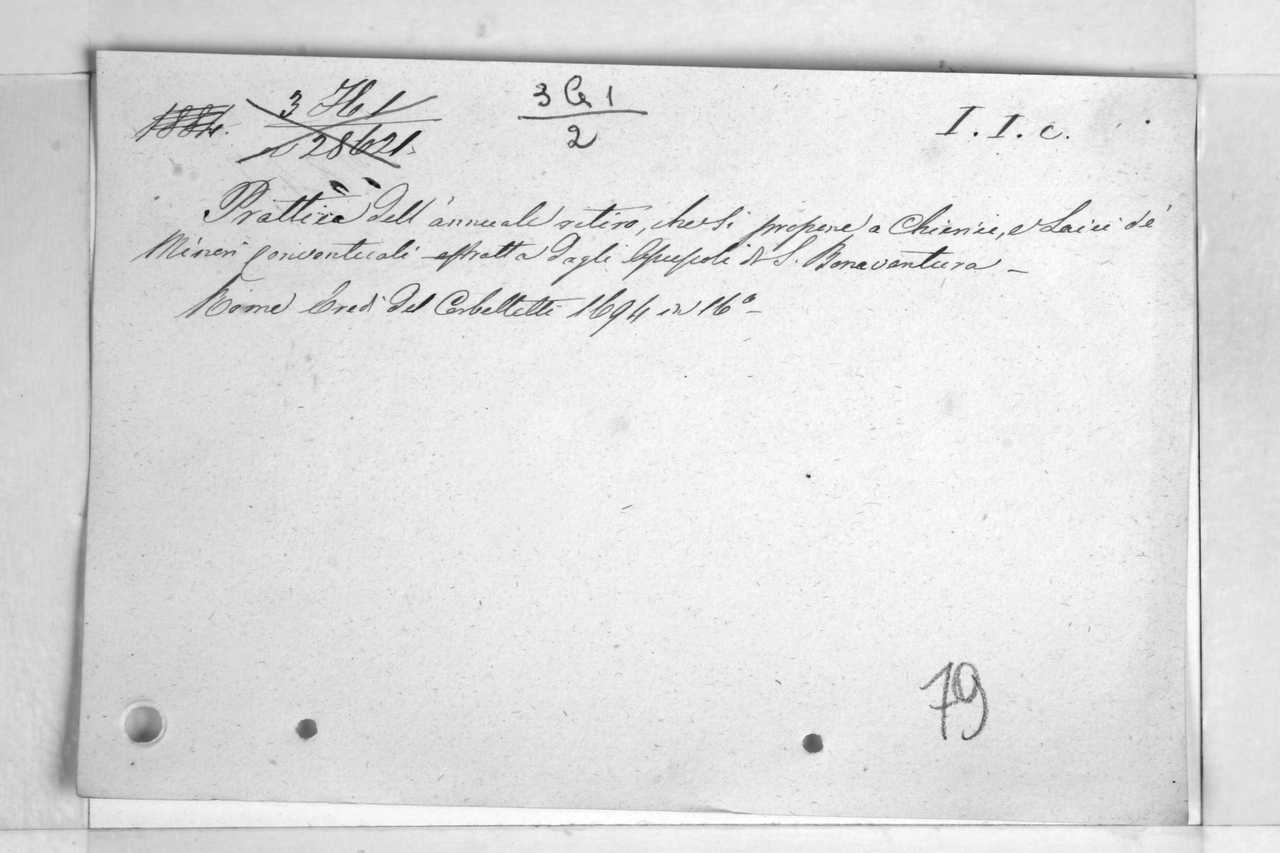 3 Ce 1
2
I. I. c.
Prattica dell'annuale ritiro, che si propone a Chierici, e Laici de'
Minori Conventuali estratta dagli Opuscoli di S. Bonaventura _
Roma Eredi del Corbelletti 1694 in 16° _
79